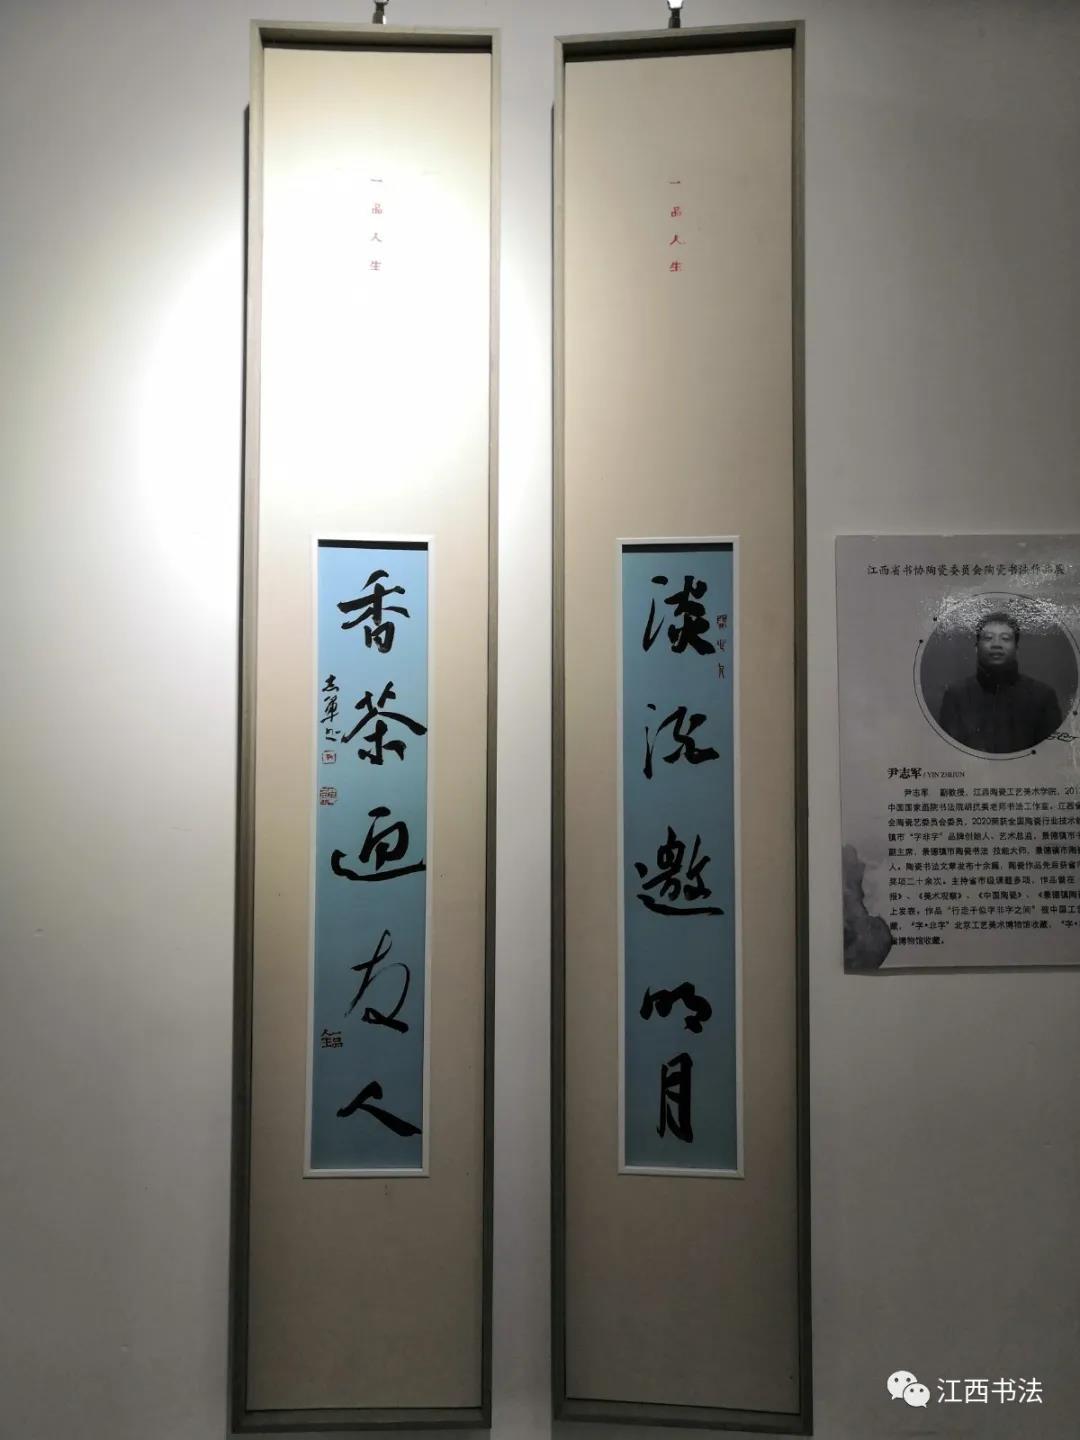 一品人生
淡酒邀明月
一品人生
香茶迎友人
志军
江西省书协陶瓷委员会陶瓷书法作品展
尹志军/YIN ZHIJUN
尹志军 副教授，江西陶瓷工艺美术学院，201
中国国家画院书法院胡抗美老师书法工作室。江西省
会陶瓷艺委员会委员，2020荣获全国陶瓷行业技术能
镇市“字非字”品牌创始人、艺术总监，景德镇市书
副主席，景德镇市陶瓷书法 技能大师，景德镇市陶瓷
人。陶瓷书法文章发布十余篇，陶瓷作品先后获省市
奖项二十余次。主持省市级课题多项，作品曾在《
报》、《美术观察》、《中国陶瓷》、《景德镇陶瓷
上发表。作品“行走于似字非字之间”被中国工艺
藏，“字·非字”北京工艺美术博物馆收藏，“字·
省博物馆收藏。
江西书法